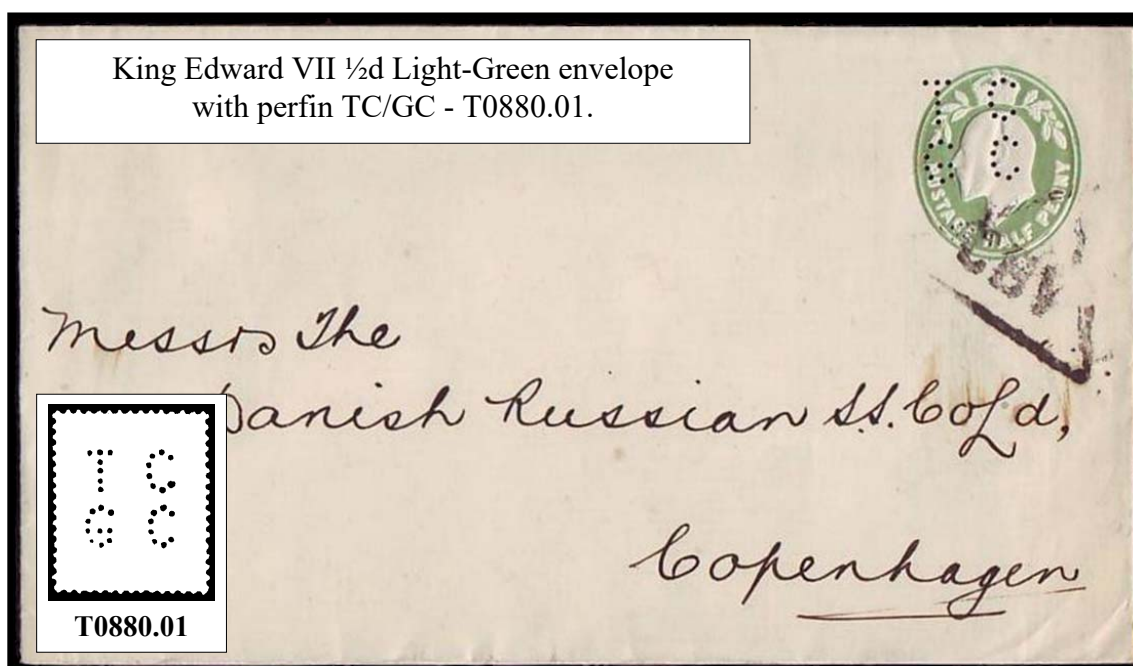 King Edward VII ½d Light-Green envelope
with perfin TC/GC - T0880.01.
POSTAGE HALF PENNY
Messrs The
Danish Russian S.S. Co Ld,
Copenhagen
T C
G C
T0880.01